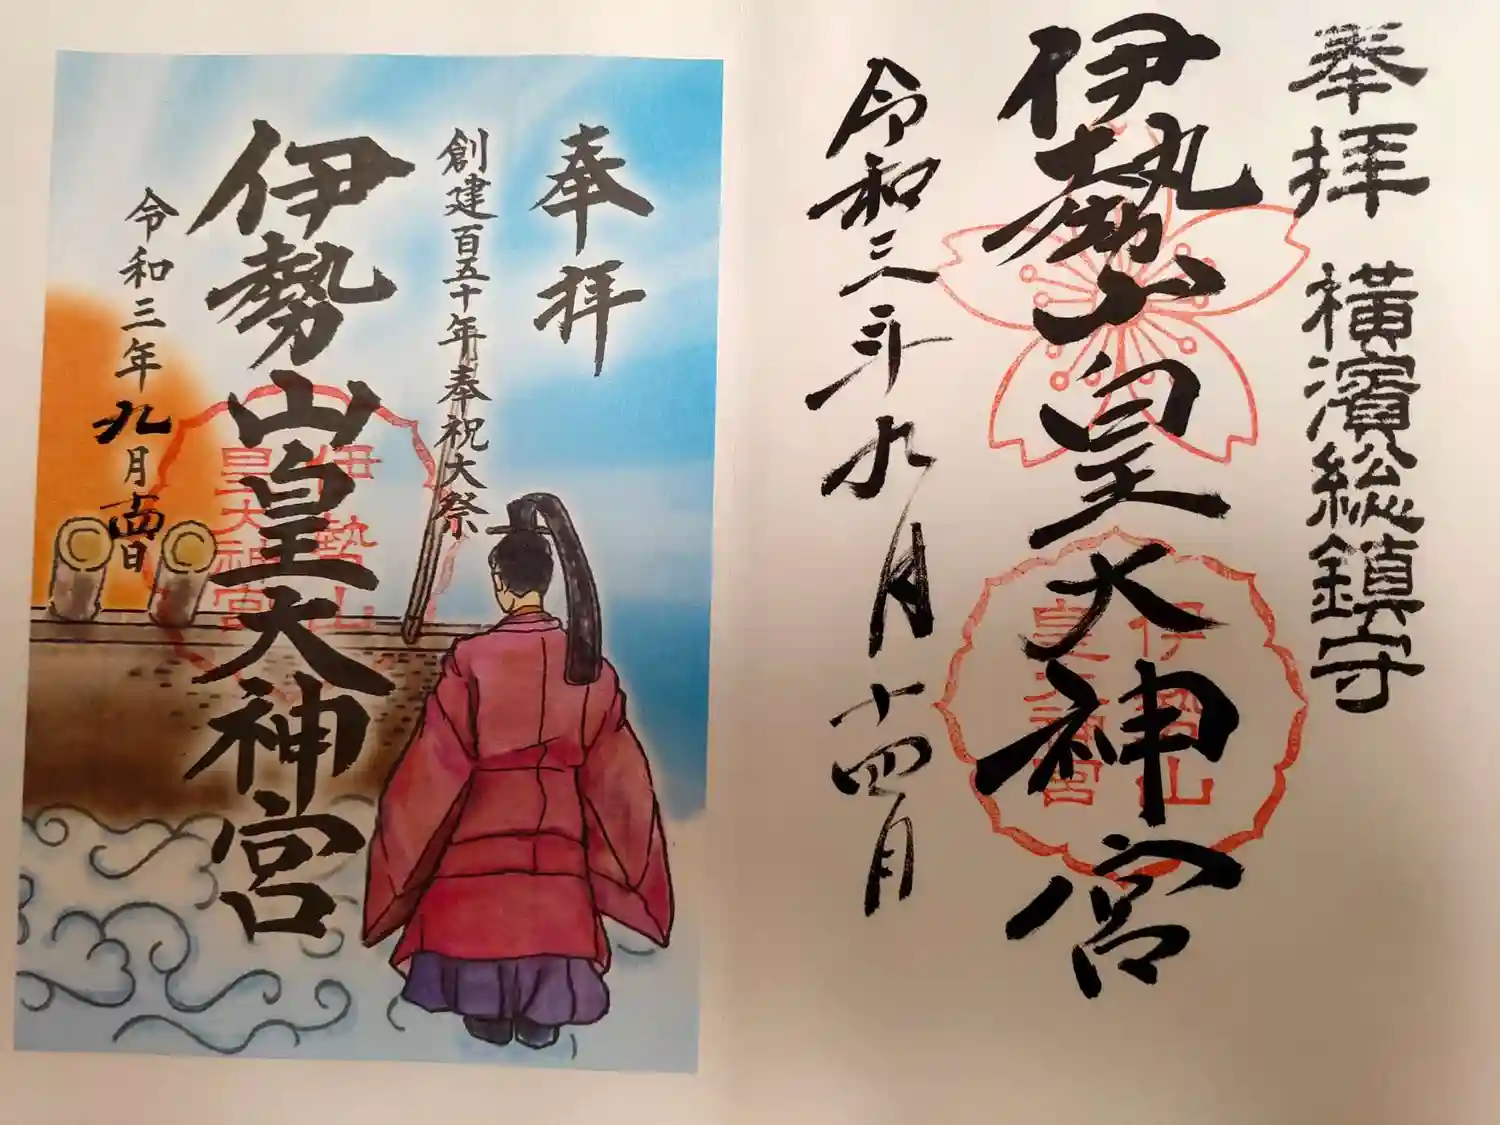 奉拝 横濱総鎮守
伊勢山皇大神宮
令和三年九月十四日
伊勢山
皇大神宮
奉拝
創建百五十年奉祝大祭
伊勢山皇大神宮
令和三年九月十四日
伊勢山
皇大神宮